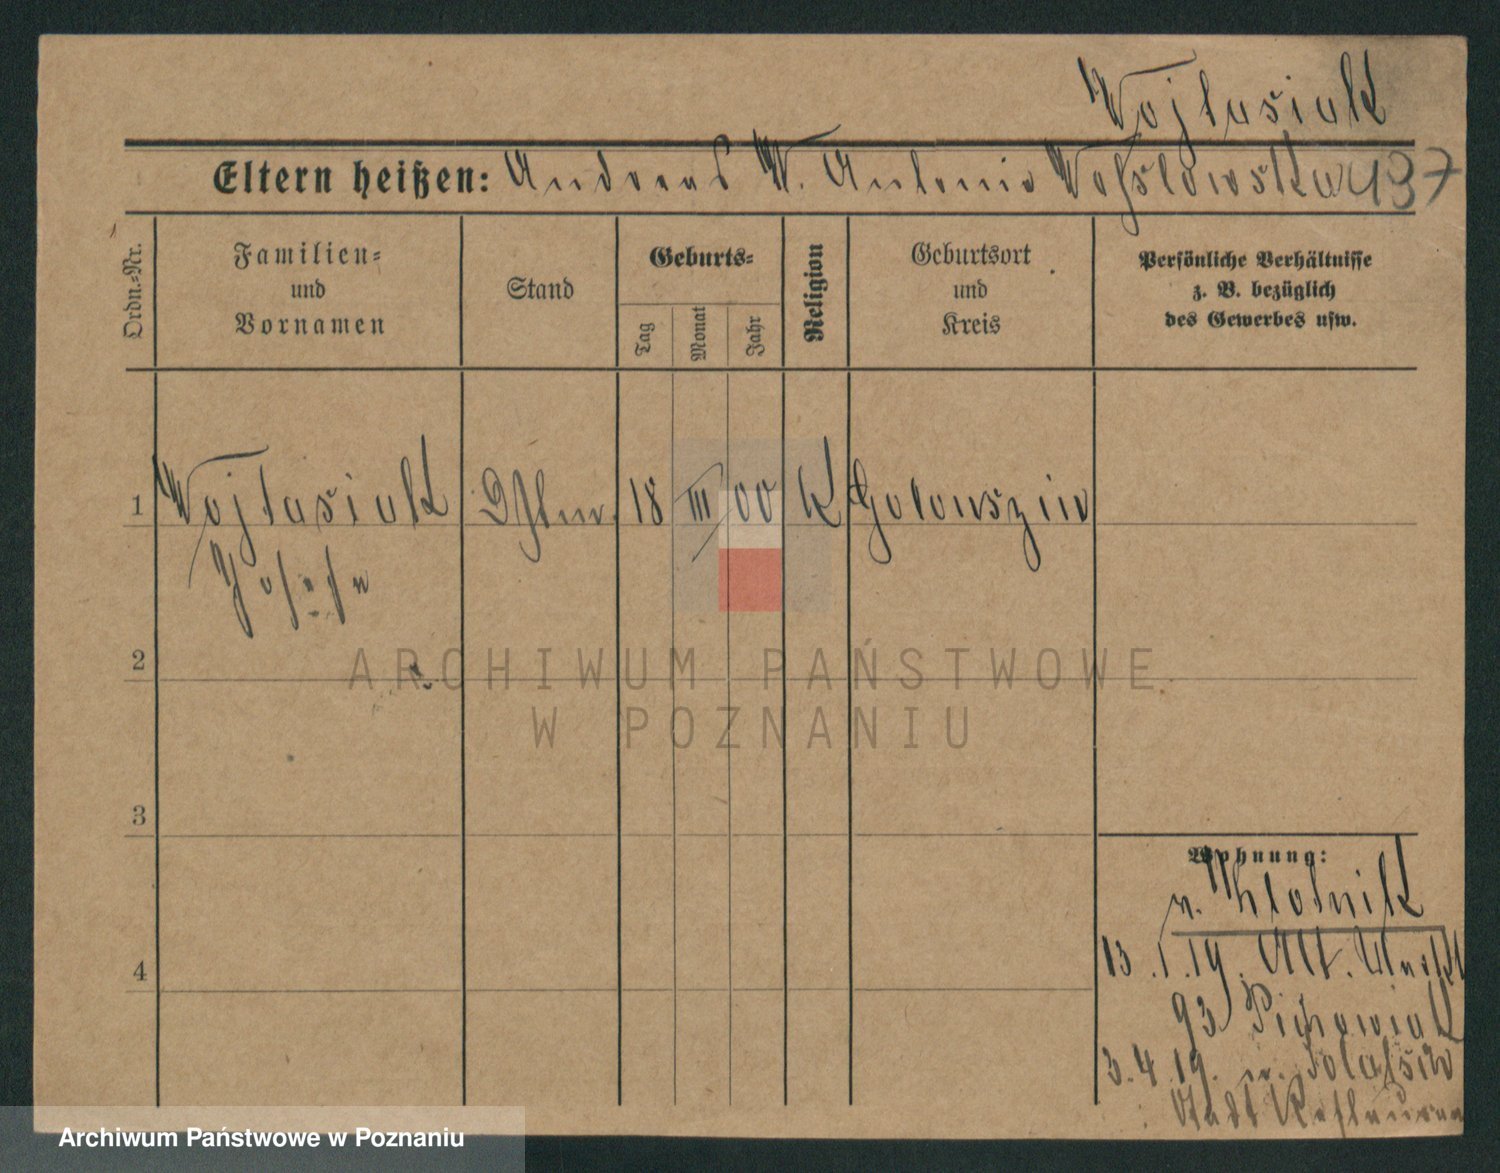 Wojtasiak
Eltern heißen: Andreas W. Antonie
437
Ordn.-Nr.
Familien-
und
Vornamen
Stand
Geburts-
Tag
Monat
Jahr
Religion
Geburtsort
und
Kreis
Persönliche Verhältnisse
z. B. bezüglich
des Gewerbes usw.
1
Wojtasiak
18
III
00
K
Golenszin
Josefa
2
3
4
Wohnung:
v. Złotnik
13.1.19. Alt. Markt
93
3.4.19. n. Solatsch
Stadt
ARCHIWUM PAŃSTWOWE
W POZNANIU
Archiwum Państwowe w Poznaniu